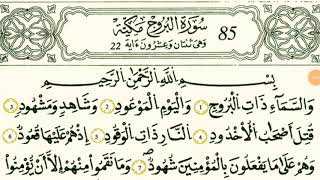 سُورَةُ الْبُرُوجِ مَكِّيَّةٌ
85
وَهِيَ ثِنْتَانِ وَعِشْرُونَ ءَايَةً 22
بِسْمِ اللَّهِ الرَّحْمَٰنِ الرَّحِيمِ
وَالسَّمَآءِ ذَاتِ الْبُرُوجِ ١ وَالْيَوْمِ الْمَوْعُودِ ٢ وَشَاهِدٍ وَمَشْهُودٍ ٣
قُتِلَ أَصْحَابُ الْأُخْدُودِ ٤ النَّارِ ذَاتِ الْوَقُودِ ٥ إِذْ هُمْ عَلَيْهَا قُعُودٌ ٦
وَهُمْ عَلَىٰ مَا يَفْعَلُونَ بِالْمُؤْمِنِينَ شُهُودٌ ٧ وَمَا نَقَمُوا مِنْهُمْ إِلَّا أَنْ يُؤْمِنُوا